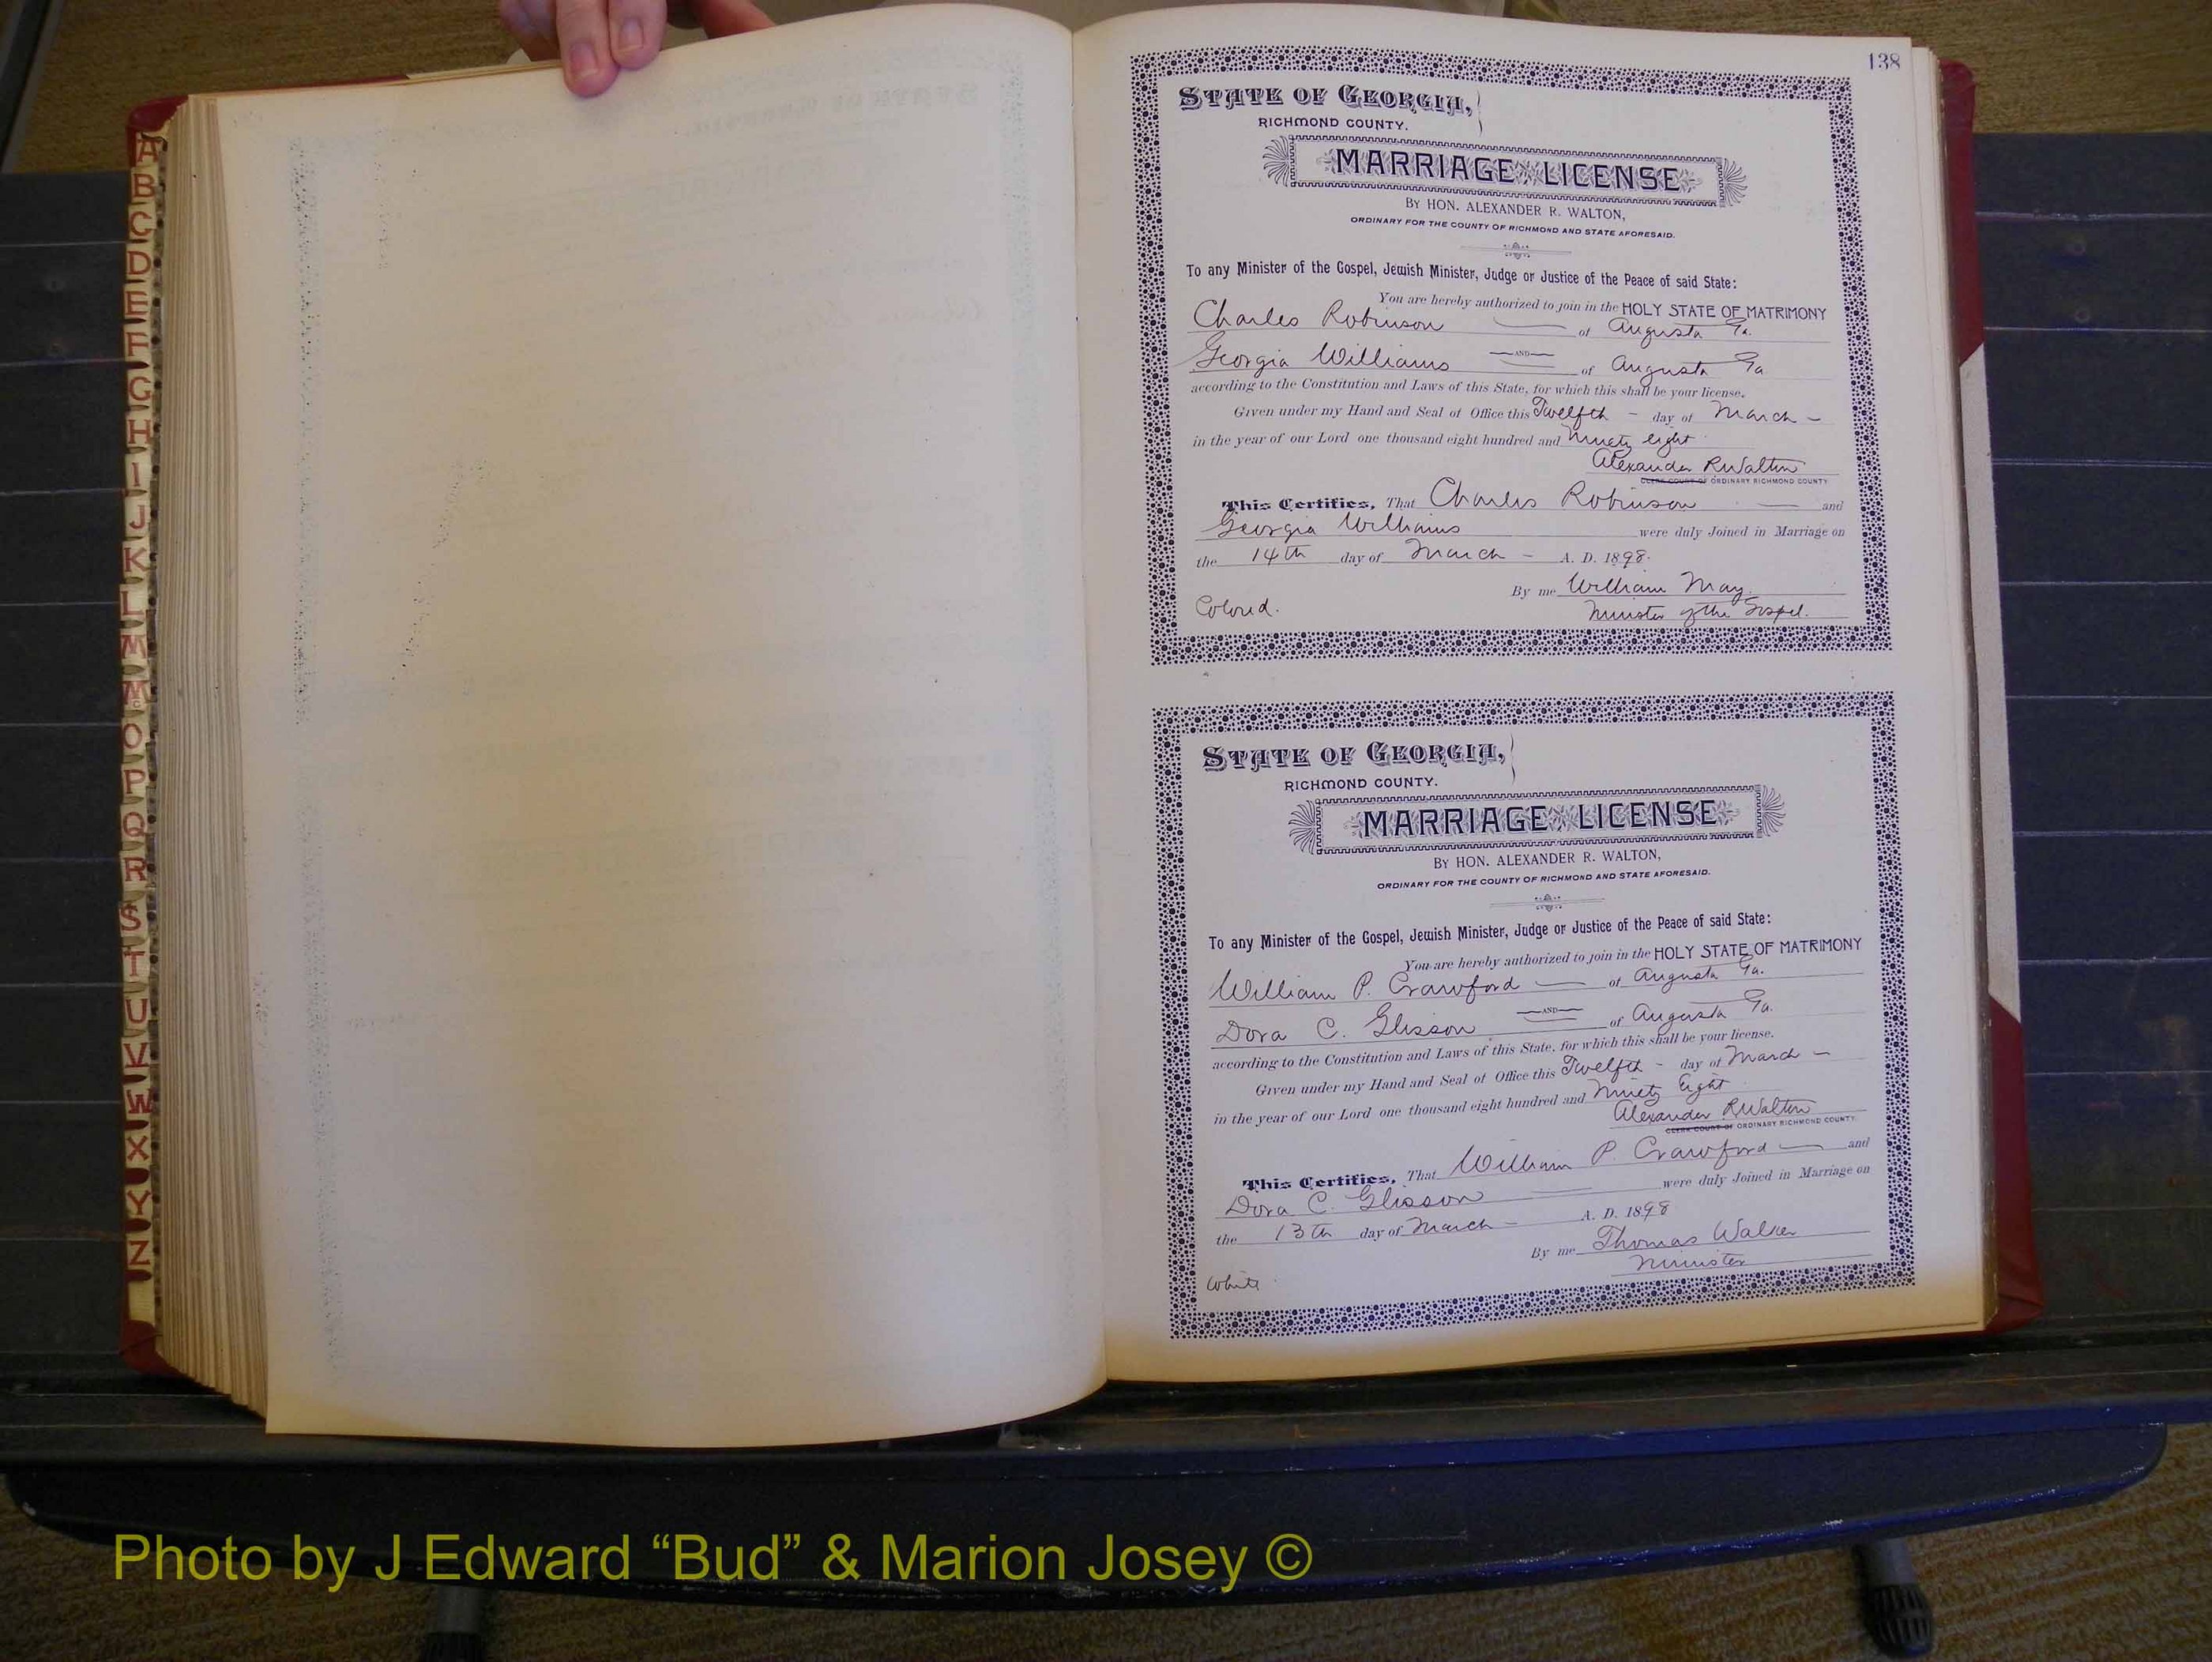 A
B
C
D
E
F
G
H
I
J
K
L
M
Mc
O
P
Q
R
S
T
U
V
W
X
Y
Z
138
STATE OF GEORGIA,
RICHMOND COUNTY.
MARRIAGE LICENSE
BY HON. ALEXANDER R. WALTON,
ORDINARY FOR THE COUNTY OF RICHMOND AND STATE AFORESAID.
To any Minister of the Gospel, Jewish Minister, Judge or Justice of the Peace of said State:
You are hereby authorized to join in the HOLY STATE OF MATRIMONY
Charles Robinson of Augusta Ga.
AND
Georgia Williams of Augusta Ga
according to the Constitution and Laws of this State, for which this shall be your license.
Given under my Hand and Seal of Office this Twelfth - day of March -
in the year of our Lord one thousand eight hundred and Ninety eight
Alexander R Walton
CLERK COURT OF ORDINARY RICHMOND COUNTY
This Certifies, That Charles Robinson and
Georgia Williams were duly Joined in Marriage on
the 14th day of March - A. D. 1898.
By me William May.
Colored. Minister of the Gospel.
STATE OF GEORGIA,
RICHMOND COUNTY.
MARRIAGE LICENSE
BY HON. ALEXANDER R. WALTON,
ORDINARY FOR THE COUNTY OF RICHMOND AND STATE AFORESAID.
To any Minister of the Gospel, Jewish Minister, Judge or Justice of the Peace of said State:
You are hereby authorized to join in the HOLY STATE OF MATRIMONY
William P. Crawford of Augusta Ga.
AND
Dora C. Glisson of Augusta Ga.
according to the Constitution and Laws of this State, for which this shall be your license.
Given under my Hand and Seal of Office this Twelfth - day of March -
in the year of our Lord one thousand eight hundred and Ninety Eight
Alexander R Walton
CLERK COURT OF ORDINARY RICHMOND COUNTY
This Certifies, That William P. Crawford and
Dora C. Glisson were duly Joined in Marriage on
the 13th day of March - A. D. 1898
By me Thomas Walker
Minister
White
Photo by J Edward “Bud” & Marion Josey ©